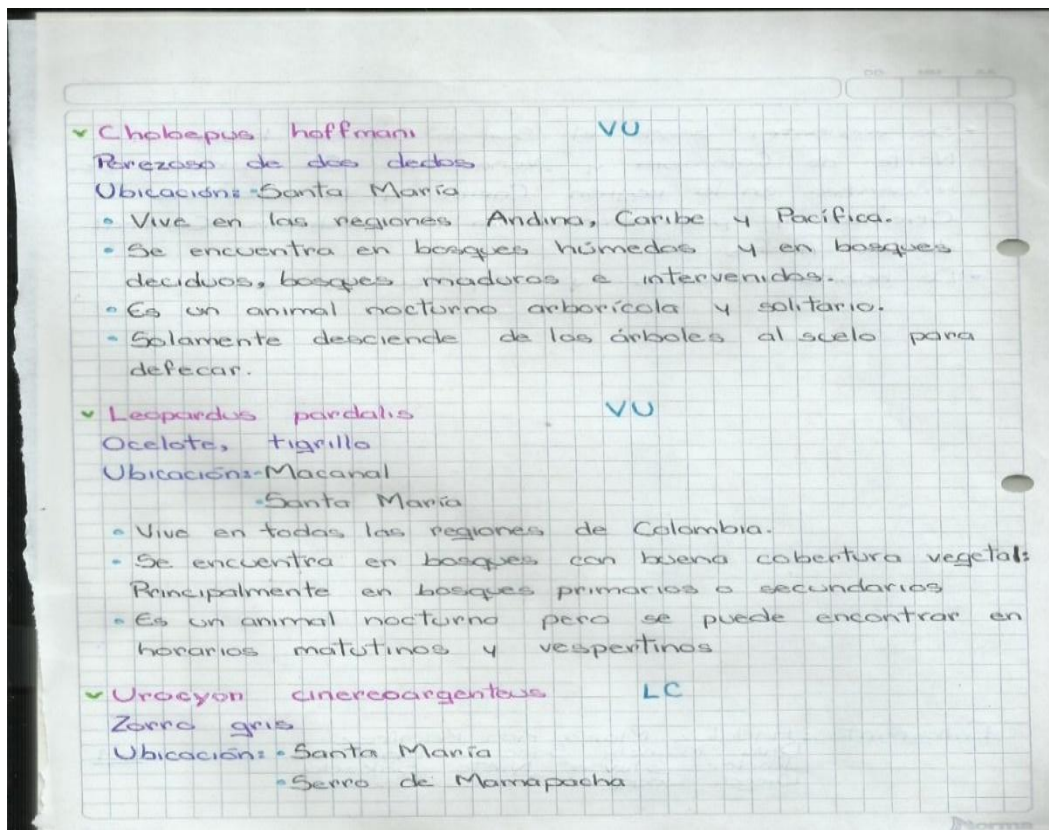 Choloepus hoffmani VU
Perezoso de dos dedos
Ubicación: -Santa María
• Vive en las regiones Andina, Caribe y Pacífica.
• Se encuentra en bosques húmedos y en bosques
deciduos, bosques maduros e intervenidos.
• Es un animal nocturno arborícola y solitario.
• Solamente desciende de los árboles al suelo para
defecar.
Leopardus pardalis VU
Ocelote, tigrillo
Ubicación: -Macanal
-Santa María
• Vive en todas las regiones de Colombia.
• Se encuentra en bosques con buena cobertura vegetal:
Principalmente en bosques primarios o secundarios
• Es un animal nocturno pero se puede encontrar en
horarios matutinos y vespertinos
Urocyon cinereoargenteus LC
Zorro gris
Ubicación: -Santa María
-Serro de Mamapacha
Norma